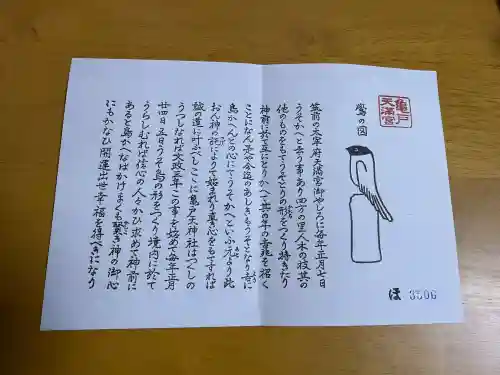 亀戸
天満宮
鷽の図
筑前の太宰府天満宮御やしろに毎年正月七日
うそかへと云ふ事あり四方の里人木の枝其の
他のものをもてうそとりの形をつくり持きたり
神前に於て互にとりかへて其の年の幸兆を招く
ことになん是や今迄のあしきもうそとなり吉に
鳥かへんとの心にてうそかへといふ元より此
おん神の託によりて始まれり真心をもてすれば
誠の道に叶ふべしここに亀戸天神社はつくしの
うつしなれば文政三年この事を始めて毎年正月
廿四日五日うそ鳥の形をつくり境内に於て
うらしむれば信心の人々かひ求めて神前に
あると鳥かへなばかけまくも 神の御心
にもかなひ開運出世幸福を得べきになり
ほ 3506